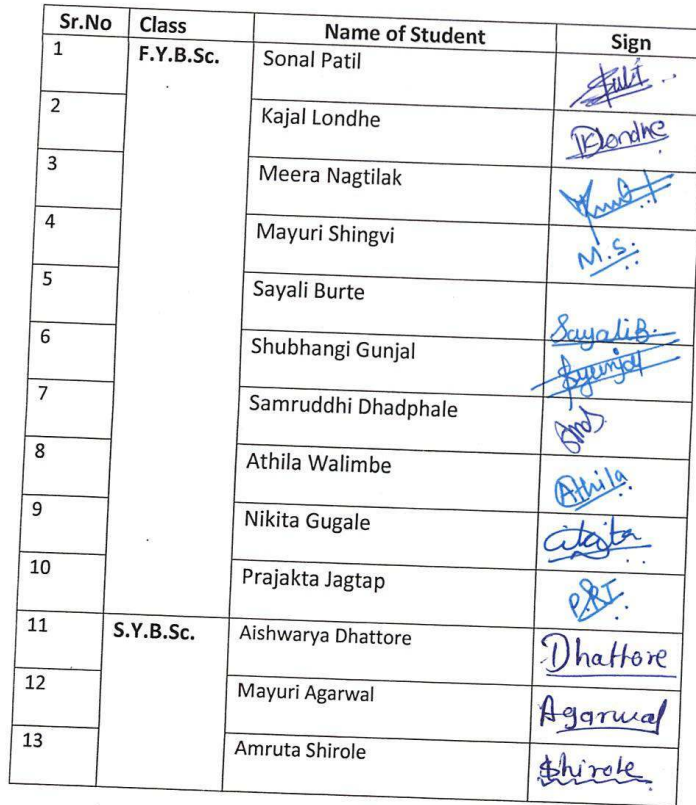 Sr.No Class Name of Student Sign
1 F.Y.B.Sc. Sonal Patil
2 Kajal Londhe KLondhe
3 Meera Nagtilak
4 Mayuri Shingvi M.S.
5 Sayali Burte SayaliB.
6 Shubhangi Gunjal
7 Samruddhi Dhadphale
8 Athila Walimbe Athila
9 Nikita Gugale
10 Prajakta Jagtap
11 S.Y.B.Sc. Aishwarya Dhattore Dhattore
12 Mayuri Agarwal Agarwal
13 Amruta Shirole Shirole